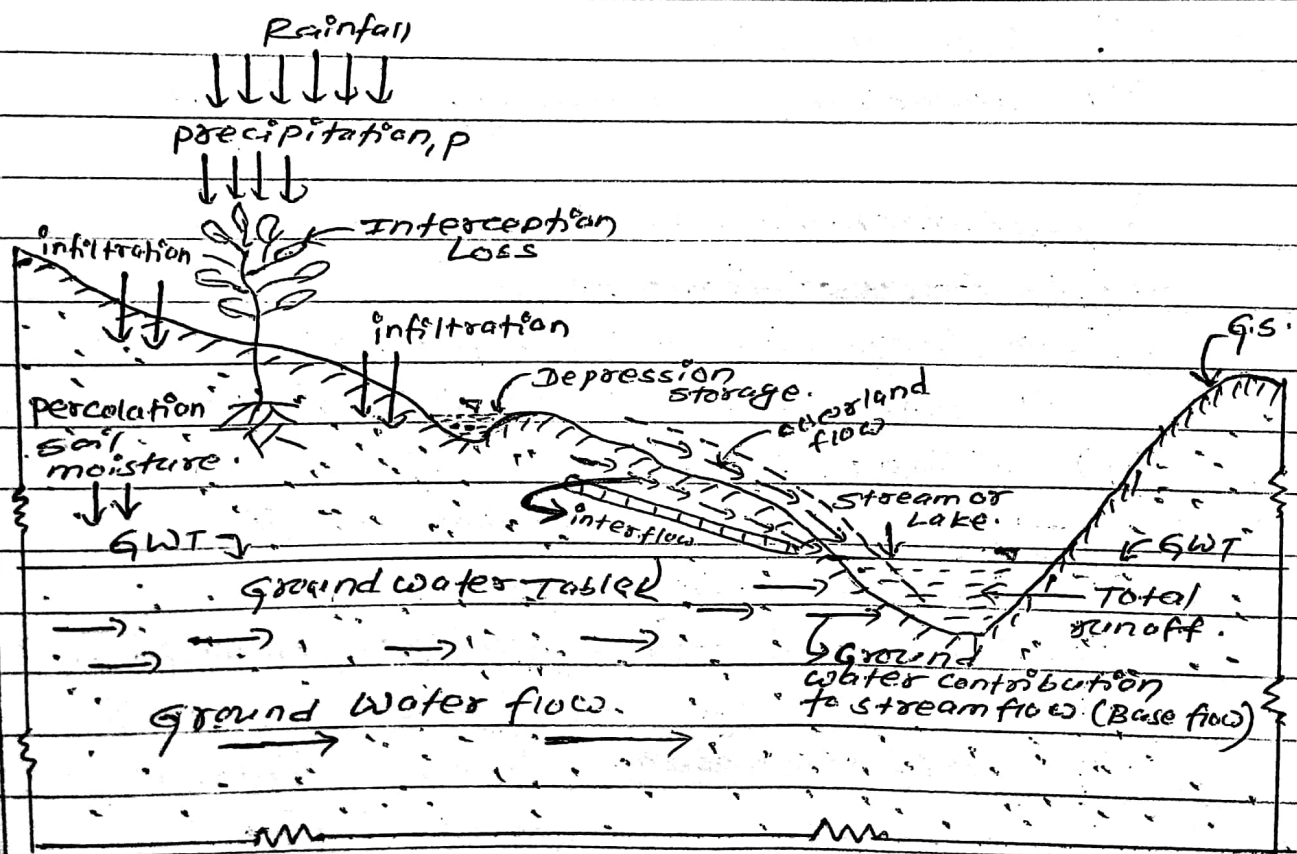 Rainfall
precipitation, P
Interception
Loss
infiltration
infiltration
G.S.
Depression
storage.
overland
flow
percolation
soil
moisture.
stream or
Lake.
interflow
GWT
GWT
Ground water Table
Total
runoff.
Ground
water contribution
to stream flow (Base flow)
Ground Water flow.